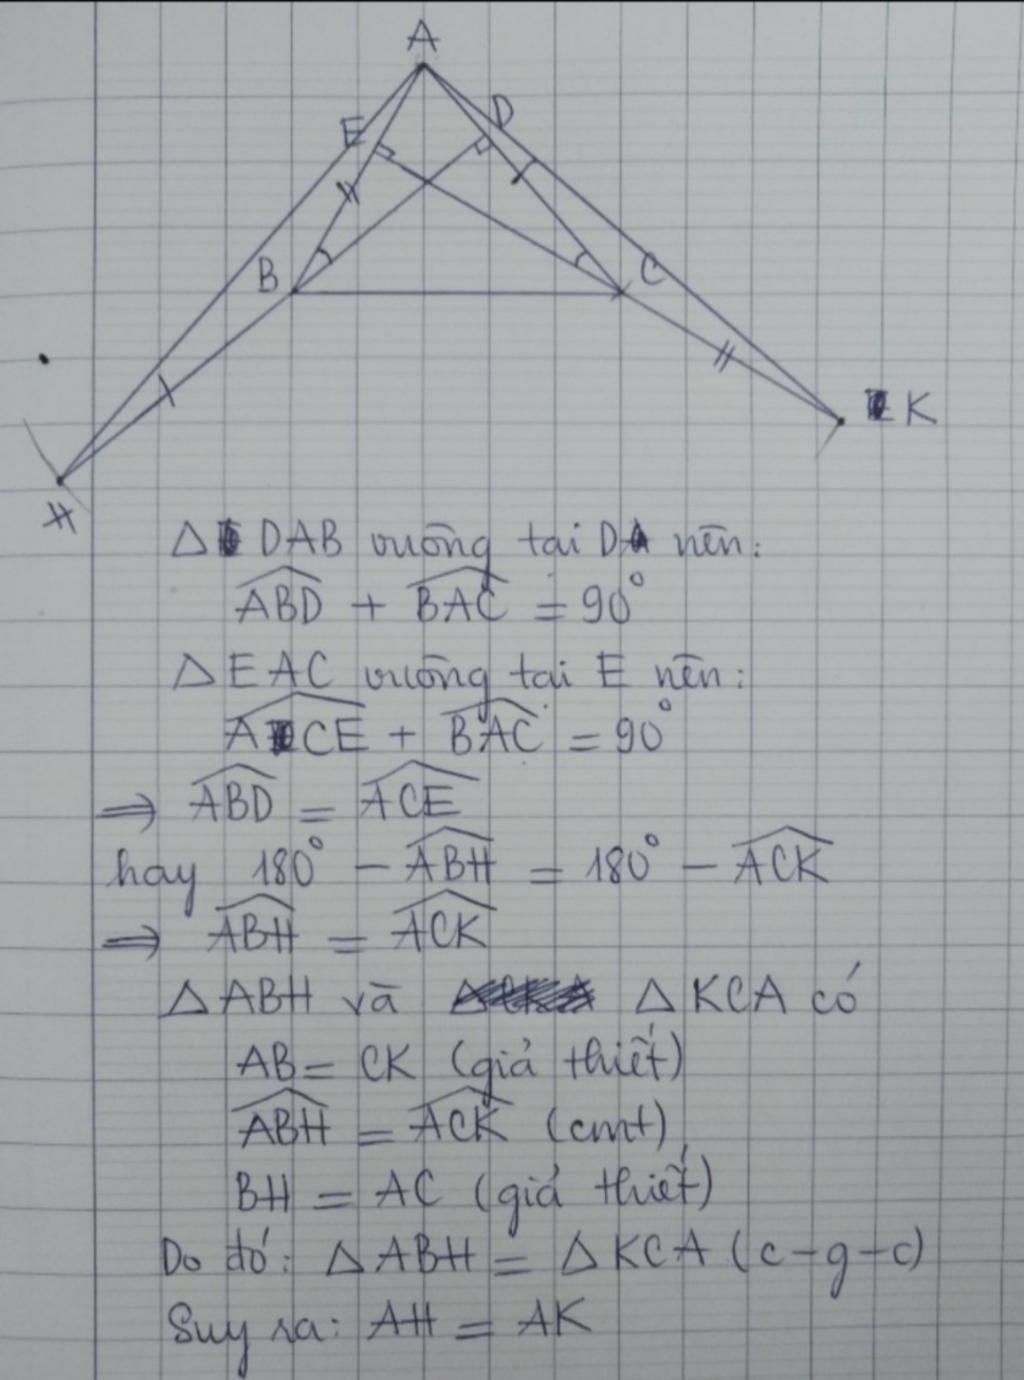 A
E
D
B
C
K
H
△ DAB vuông tại D nên:
ABD + BAC = 90°
△ EAC vuông tại E nên:
ACE + BAC = 90°
⇒ ABD = ACE
hay 180° - ABH = 180° - ACK
⇒ ABH = ACK
△ ABH và △ KCA có
AB = CK (giả thiết)
ABH = ACK (cmt)
BH = AC (giả thiết)
Do đó: △ ABH = △ KCA (c-g-c)
Suy ra: AH = AK